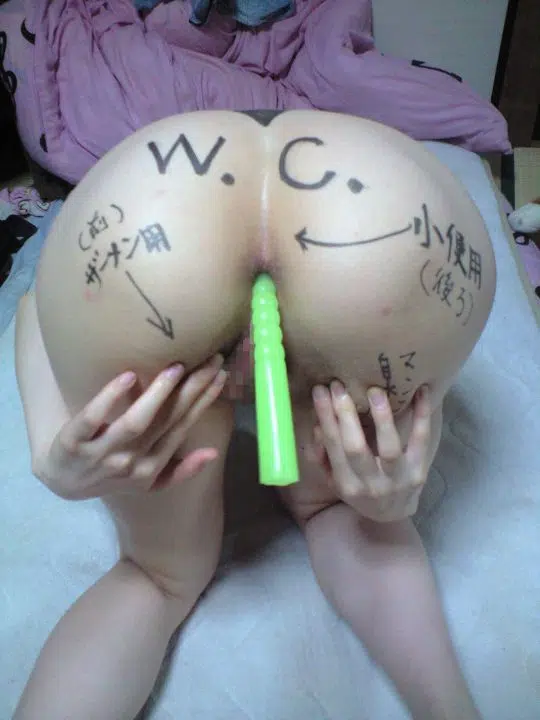 W. C.
(前)
ザーメン用
小便用
(後ろ)